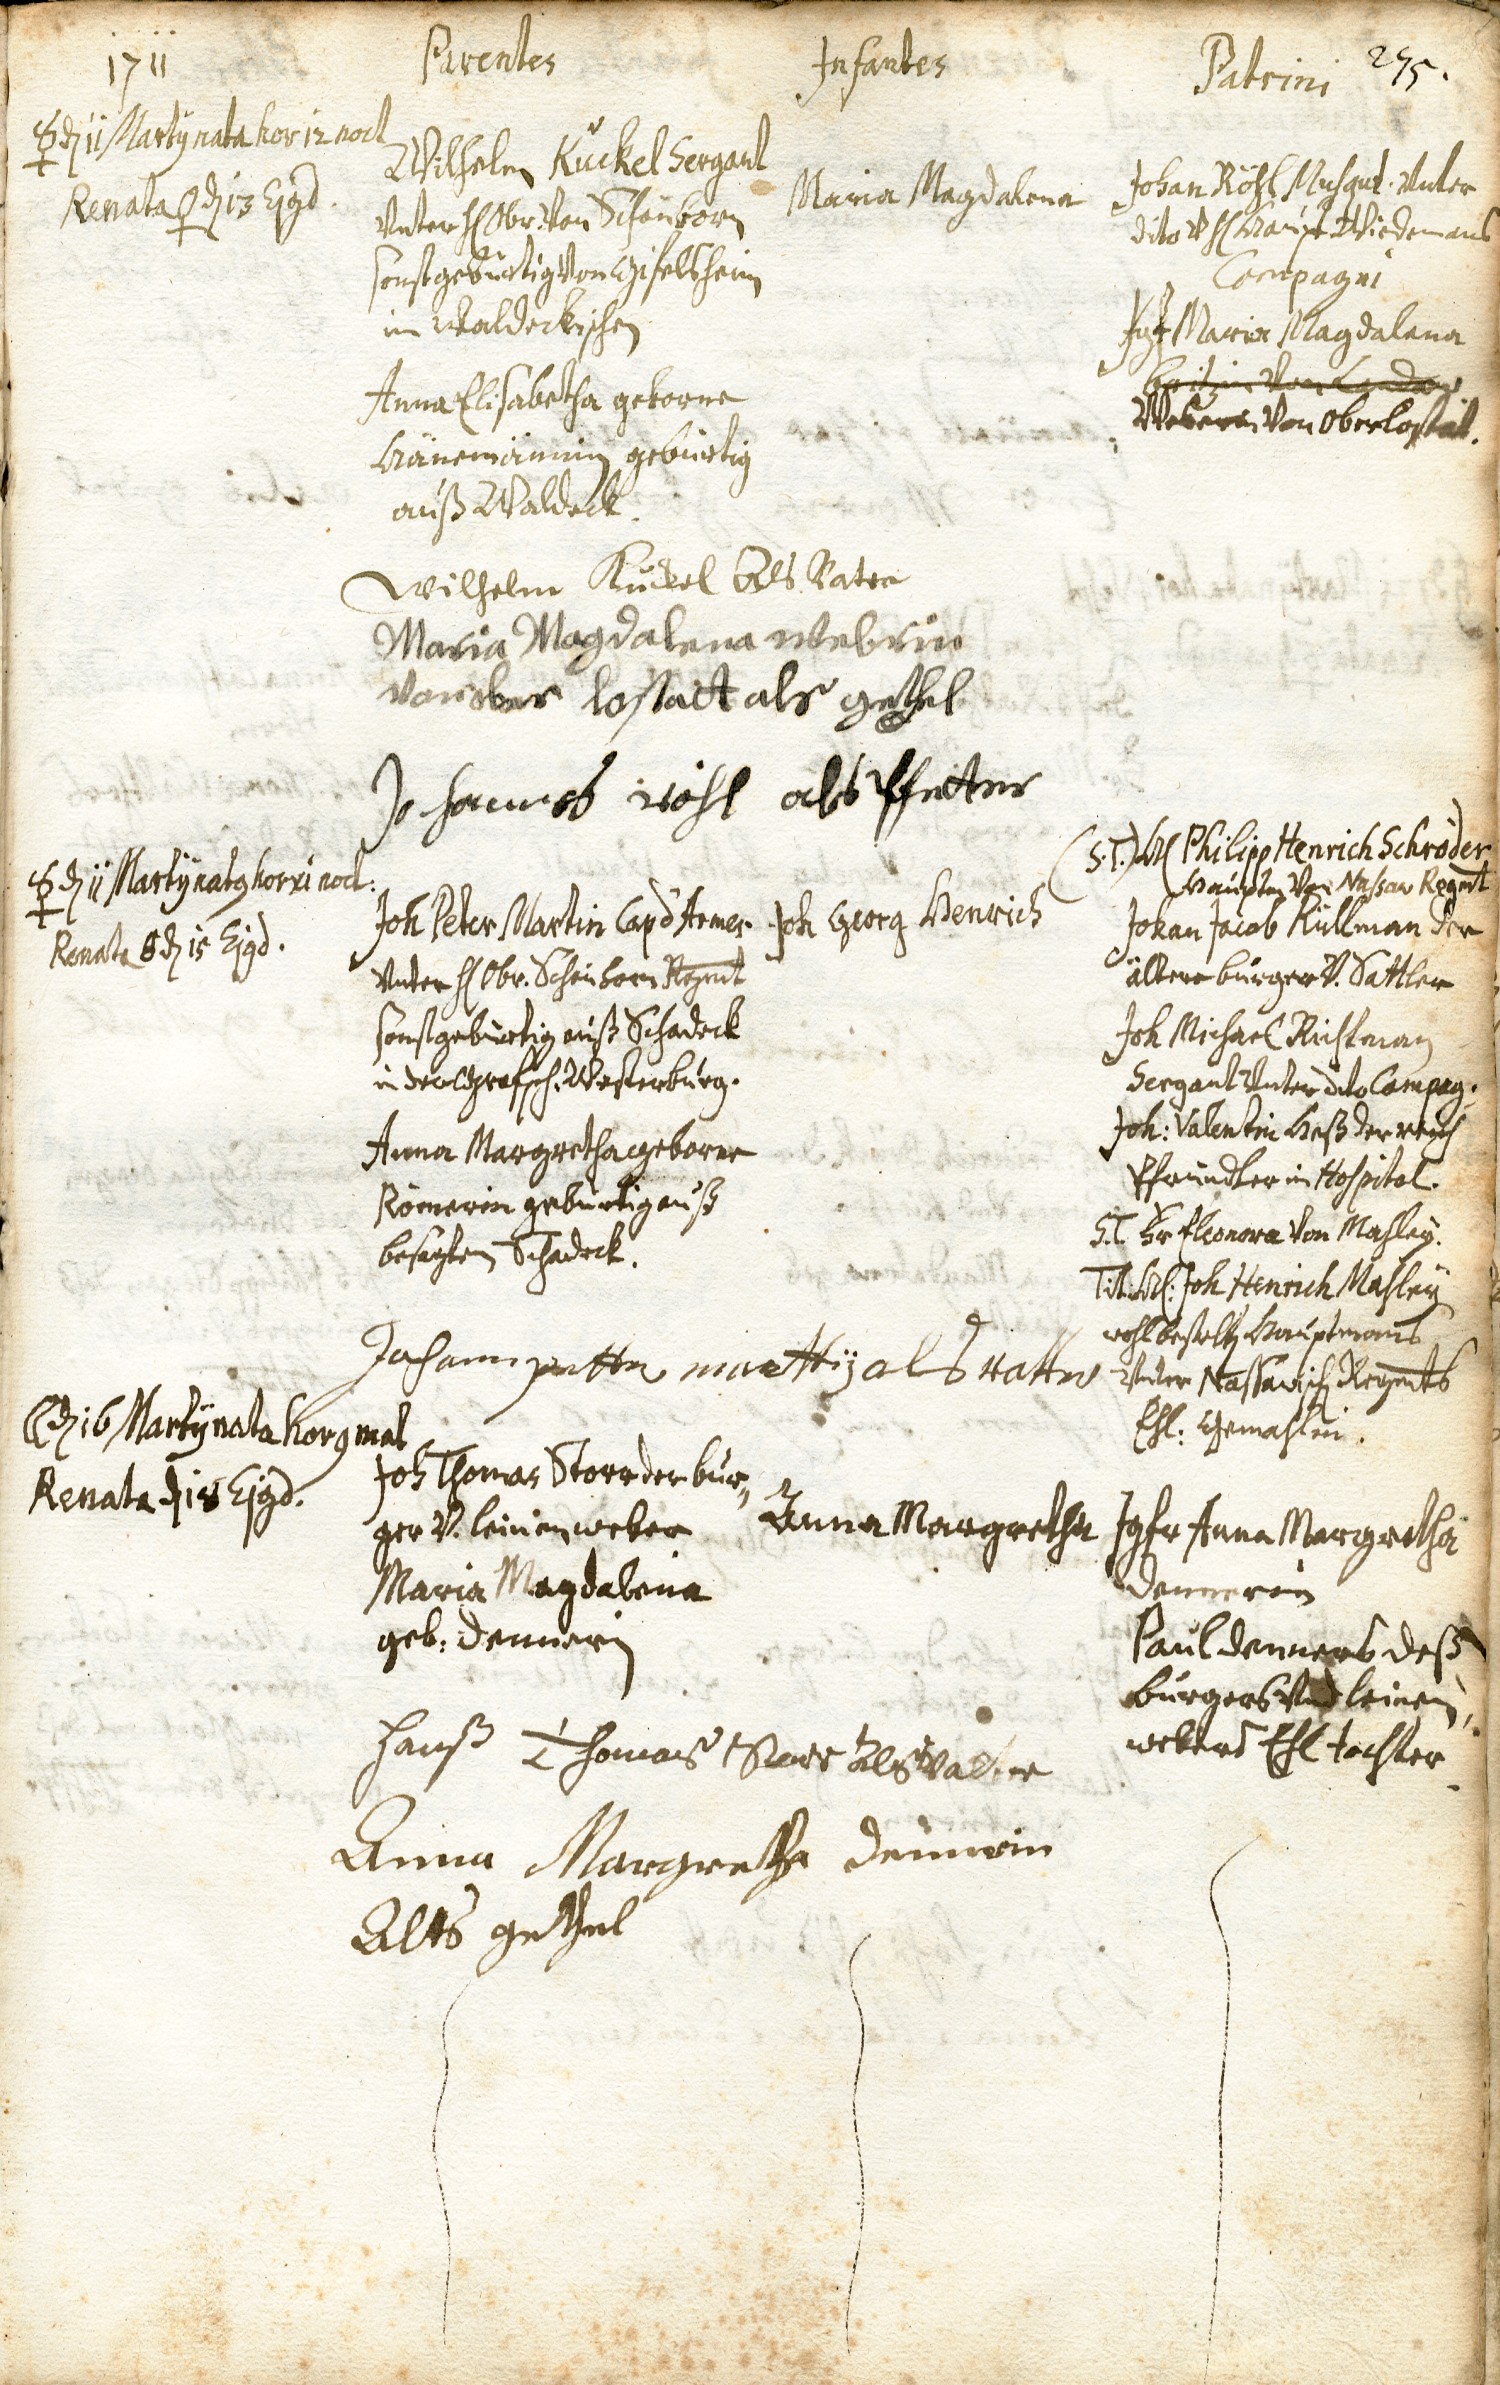 1711
Parentes
Infantes
Patrini
275.
d 11 Martÿ nata hor 12 noct
Renata d 13 Ejqd.
Wilhelm Kückel Sergant
Unter H Obr: Von Schönborn
sonst gebürtig Von Gifeltsheim
im Waldeckischen
Anna Elisabetha geborne
gebürtig
auß Waldeck.
Maria Magdalena
Johan Röhl Musqut. Unter
dito V H Haupt Wiedemans
Compagni
Jgf Maria Magdalena
Von
Weberin Von Oberlostat.
Wilhelm Kückel Als Vater
Maria Magdalena Webrin
Von ober lostatt als gethel
Johannes röhl als Pfetter
d 11 Martÿ natq hor xi noct:
Renatq d 15 Ejqd.
Joh Peter Martin Cap d'Armes
Unter H Obr. Schönborn Regmt
sonst gebürtig auß Schadeck
in der Grafsch. Westerburg.
Anna Margretha geborne
Römerin gebürtig auß
besagtem Schadeck.
Joh Georg Henrich
(S.T.) H Philipp Henrich Schröder
Hauptm Von Nassaw Regmt
Johan Jacob Küllman der
ältere burger V. Sattler
Joh Michael Richtman
Sergant Unter dito Compag.
Joh: Valentin Heß der reich
Pfründter in Hospital.
S.T. Fr Eleonora Von Mahley.
Tit: H: Joh Henrich Mahley
wohl bestelts Hauptmans
Unter Nassawisch Regmts
Ehl: Gemahlin.
Johann petter marttij als vatter
d 16 Martÿ nata hor 9 mat
Renata d 18 Ejqd.
Joh Thomas Storr der bur„
ger V. leinenweber
Maria Magdalena
geb: Dennerin
Anna Margretha
Jgfr Anna Margretha
Dennerin
Paul Denners deß
burgers Und leinen„
webers Ehl tochter
Hanß Thomas Storr Als Vatter
Anna Margretha Dennerin
Alts gethel